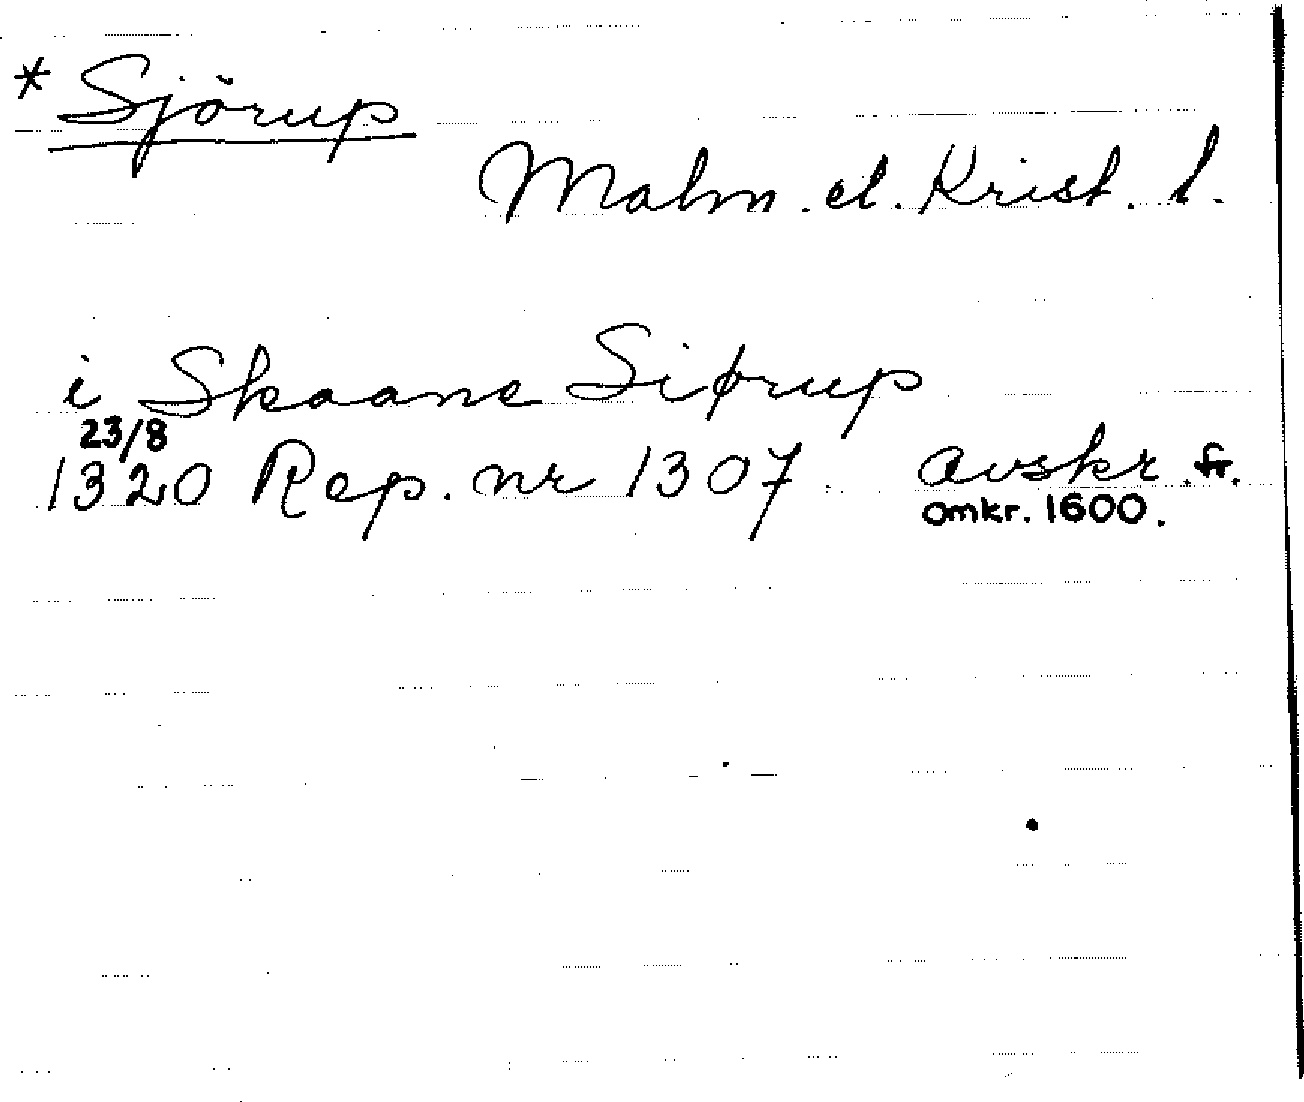 * Sjörup
Malm. el. Krist. l.
i Skaane Siørup
23/8
1320 Rep. nr 1307 avskr. fr.
omkr. 1600.